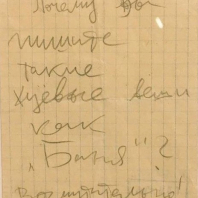 Почему вы
пишите
такие
хуёвые вещи
как
„Баня"?
Возмутительно!